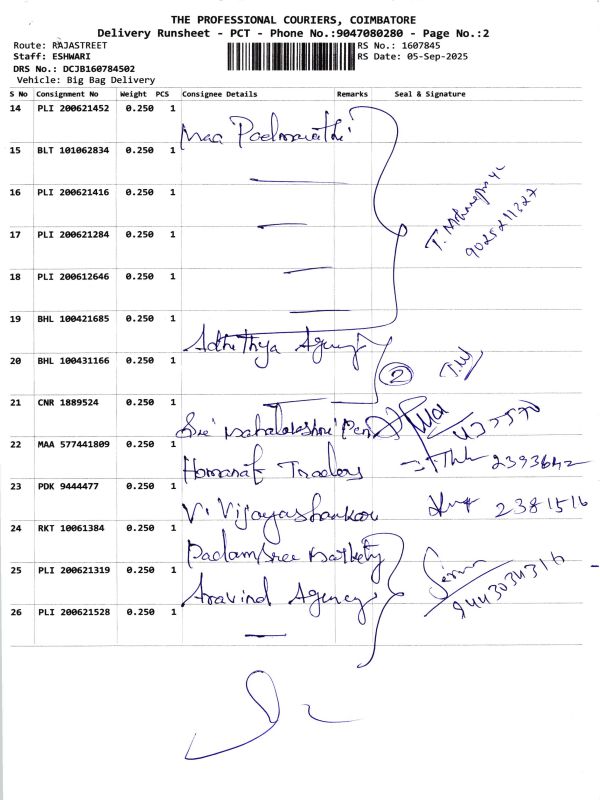 THE PROFESSIONAL COURIERS, COIMBATORE
Delivery Runsheet - PCT - Phone No.:9047080280 - Page No.:2
Route: RAJASTREET
Staff: ESHWARI
DRS No.: DCJB160784502
Vehicle: Big Bag Delivery
RS No.: 1607845
RS Date: 05-Sep-2025
S No Consignment No Weight PCS Consignee Details Remarks Seal & Signature
14 PLI 200621452 0.250 1 Maa
15 BLT 101062834 0.250 1
16 PLI 200621416 0.250 1
17 PLI 200621284 0.250 1
18 PLI 200612646 0.250 1
19 BHL 100421685 0.250 1 Adhithya Agency
20 BHL 100431166 0.250 1 2
21 CNR 1889524 0.250 1 Sri
22 MAA 577441809 0.250 1 Traders 2393642
23 PDK 9444477 0.250 1 V. Vijayashankar 2381516
24 RKT 10061384 0.250 1
25 PLI 200621319 0.250 1 Aravind Agency 9443034316
26 PLI 200621528 0.250 1